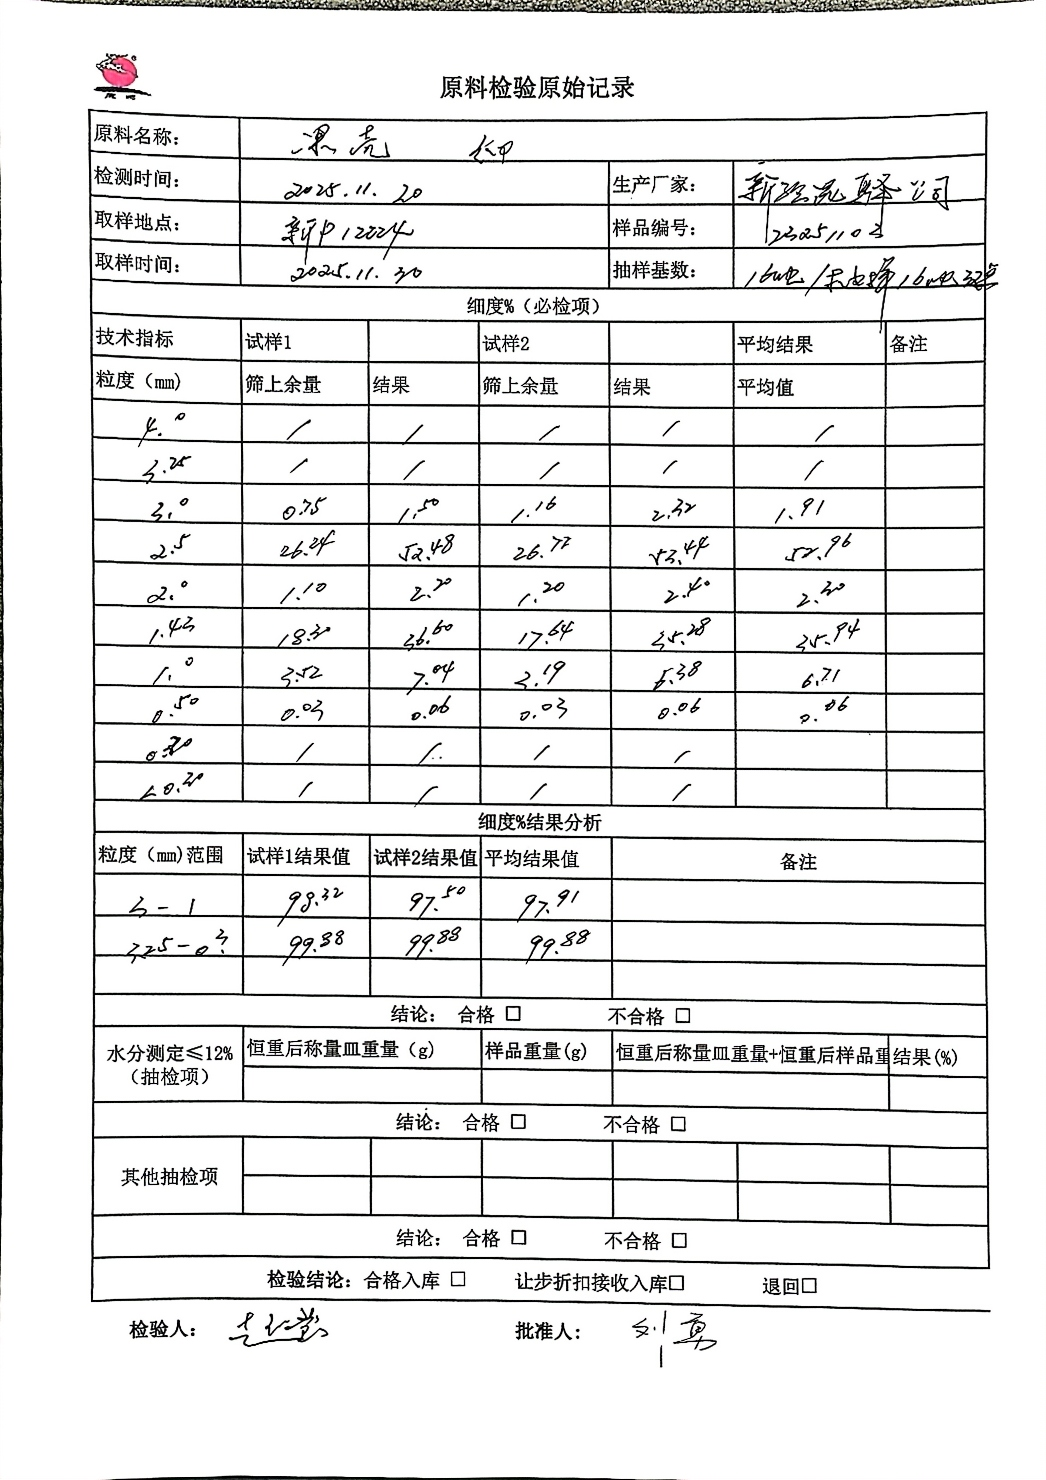 原料检验原始记录
原料名称： 果壳
检测时间： 2025.11.20 生产厂家： 公司
取样地点： 样品编号：
取样时间： 2025.11.20 抽样基数：
细度%（必检项）
技术指标 试样1 试样2 平均结果 备注
粒度（mm) 筛上余量 结果 筛上余量 结果 平均值
4.0 / / / / /
3.25 / / / / /
3.0 0.75 1.50 1.16 2.32 1.91
2.5 26.24 52.48 26.72 53.44 52.96
2.0 1.10 2.20 1.20 2.40 2.30
1.43 18.30 36.60 17.64 35.28 35.94
1.0 3.52 7.04 3.19 6.38 6.71
0.50 0.03 0.06 0.03 0.06 0.06
0.30 / / / /
<0.30 / / / /
细度%结果分析
粒度（mm)范围 试样1结果值 试样2结果值 平均结果值 备注
3-1 98.32 97.50 97.91
3.25-0.3 99.88 99.88 99.88
结论： 合格 □ 不合格 □
水分测定≤12%（抽检项） 恒重后称量皿重量（g） 样品重量(g) 恒重后称量皿重量+恒重后样品重 结果(%)
结论： 合格 □ 不合格 □
其他抽检项
结论： 合格 □ 不合格 □
检验结论：合格入库 □ 让步折扣接收入库□ 退回□
检验人： 批准人： 刘勇